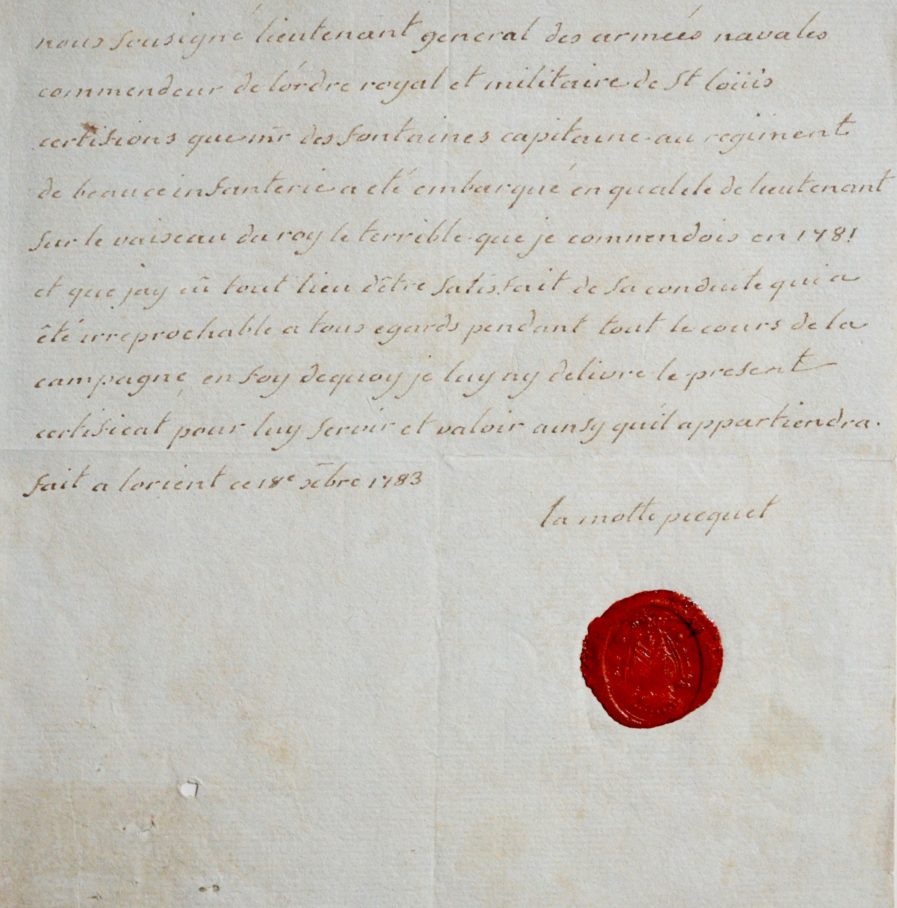 nous sousigné lieutenant general des armeés navales
commendeur de l'ordre royal et militaire de St loüis
certifions que mr des fontaines capitaine au regiment
de beauce infanterie a été embarqué en qualele de lieutenant
sur le vaiseau du roy le terrible que je commendois en 1781
et que jay eû tout lieu dêtre satisfait de sa conduite qui a
êté irreprochable a tous egards pendant tout le cours de la
campagne, en foy dequoy je luy ny delivre le present
certificat pour luy servir et valoir ainsy quil appartiendra.
fait a lorient ce 18e xbre 1783
la motte picquet